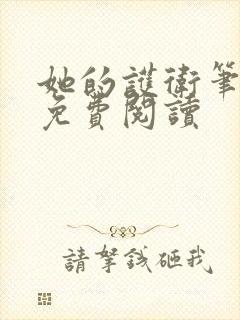 她的護衛筆
免費閱讀
請拏錢砸我